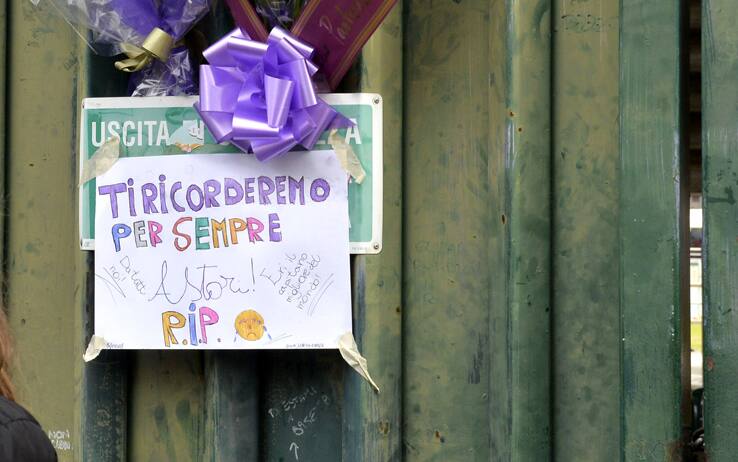 USCITA
TI RICORDEREMO
PER SEMPRE
Da tutti
noi!
Astori!
Eri il
capitano
migliore del
mondo!
R.I.P.
NON